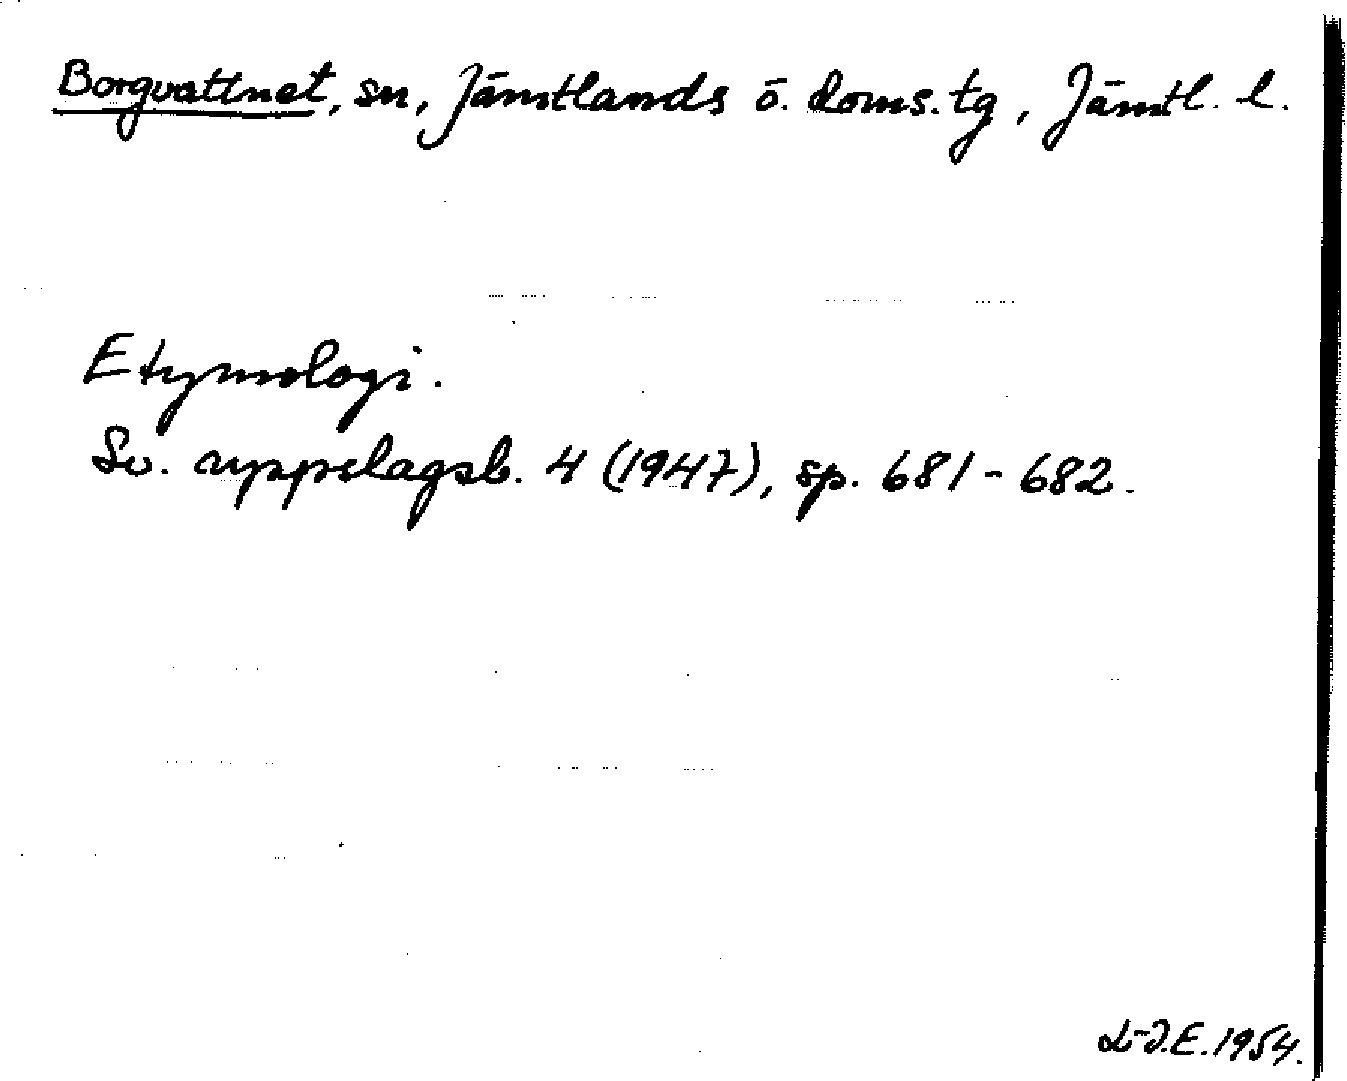 Borgvattnet, sn, Jämtlands ö. doms. tg, Jämtl. l.
Etymologi.
Sv. uppslagsb. 4 (1947), sp. 681-682.
L-J.E. 1954.